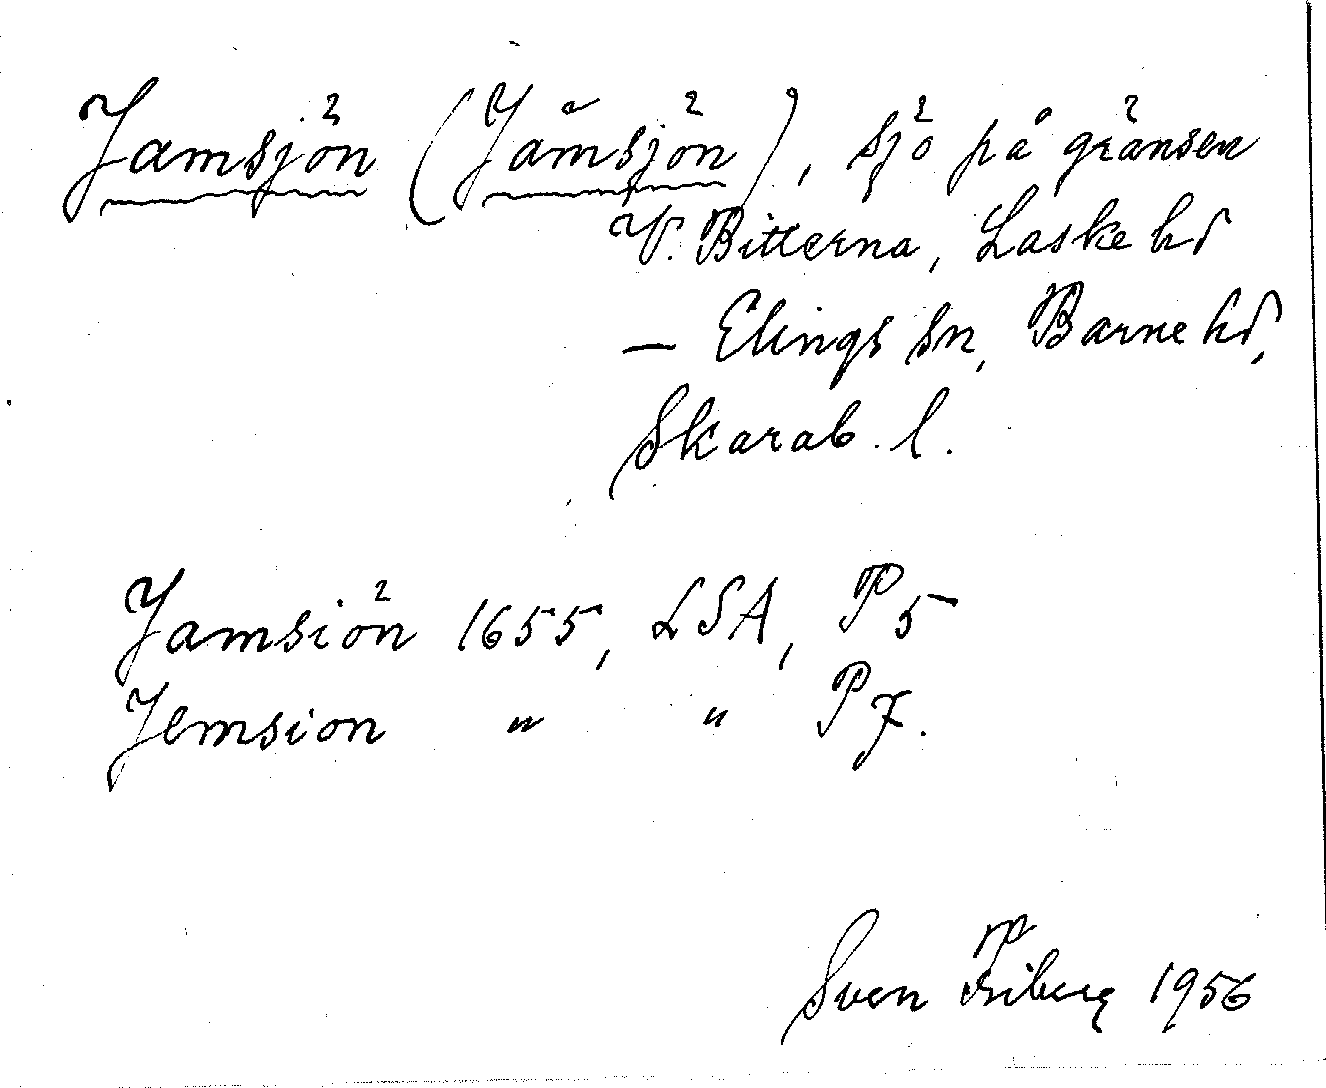 Jamsjön (Jämsjön), sjö på gränsen
V. Bitterna, Laske hd
— Elings sn, Barne hd,
Skarab. l.
Jamsiön 1655, LSA, P5
Jemsion " " P7.
Sven Friberg 1956